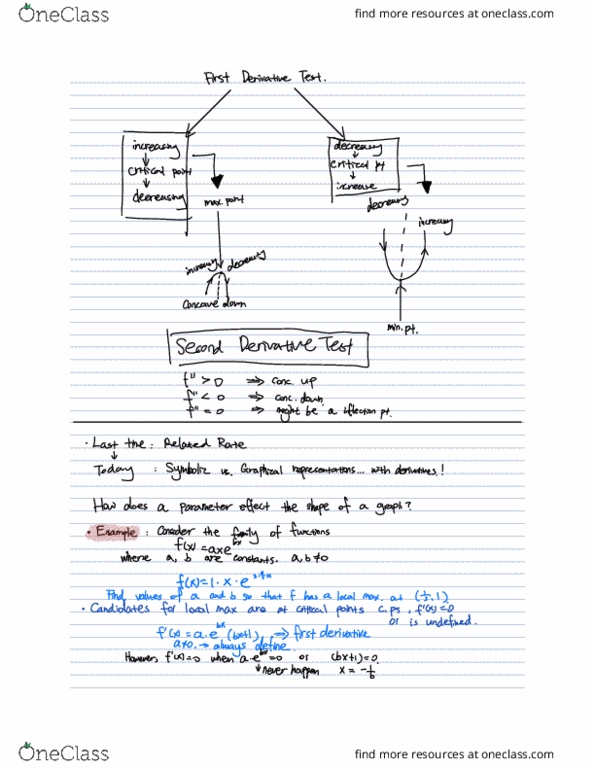 OneClass
find more resources at oneclass.com
First Derivative Test.
increasing
critical point
decreasing
max. point
increasing
decreasing
Concave down
decreasing
critical pt
increase
decreasing
increasing
min. pt.
Second Derivative Test
f" > 0 ⇒ conc. up
f" < 0 ⇒ conc. down
f" = 0 ⇒ might be a iflection pt.
• Last the: Related Rate
Today : Symbolic vs. Graphical representations... with derivatives!
How does a parameter effect the shape of a graph?
• Example : Consider the family of functions
f(x) = axe^bx
where a, b are constants. a, b ≠ 0
f(x) = 1 · x · e
Find values of a and b so that f has a local max. at (1/2, 1)
• Candidates for local max are at critical points c.ps, f'(x) = 0
or is undefined.
f'(x) = a · e^bx (bx+1) ⇒ first derivative
a≠0. → always define
However, f'(x) = 0 when a·e^bx = 0 or (bx+1) = 0.
never happen x = -1/b
OneClass
find more resources at oneclass.com